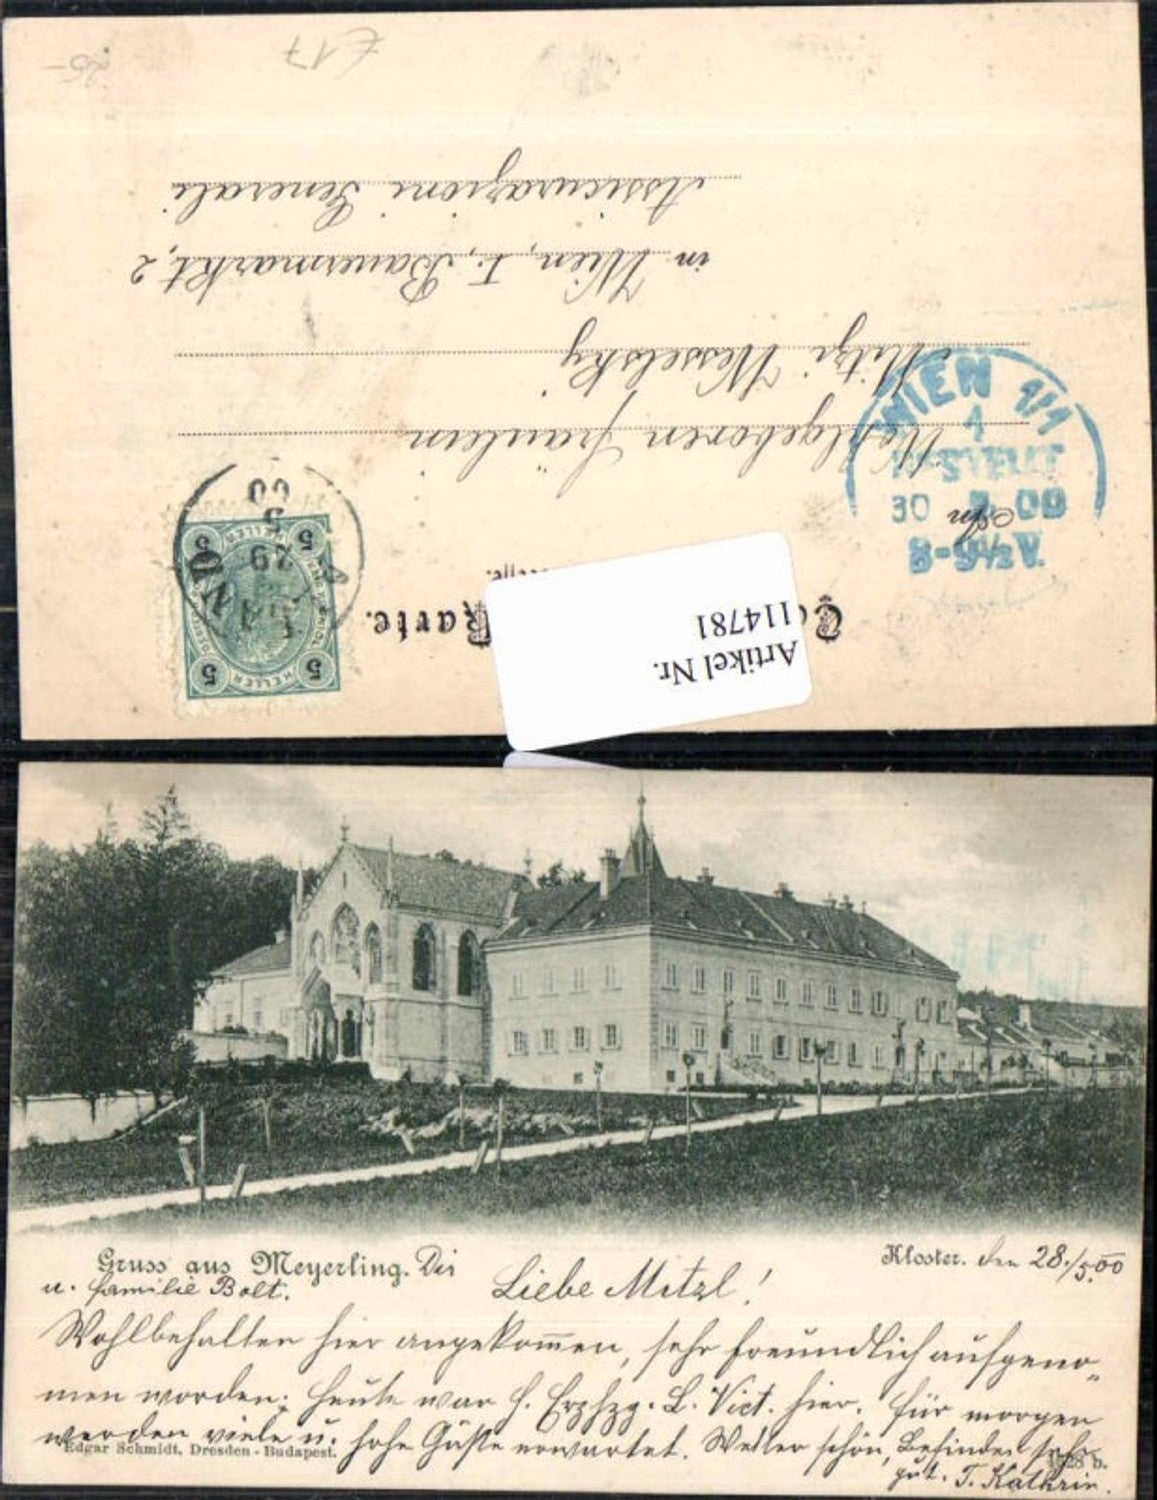 E 17
25-
Correspondenz-Karte.
Artikel Nr.
114781
An
Wohlgeboren Fräulein
Mitzi Wesselsky
in Wien, I., Bauermarkt, 2
Assicurazioni Generali
WIEN 1/1
1
BESTELLT
30 5 00
8-9½V.
5 HELLER 5
LAND
29
5
00
Gruss aus Meyerling. Dir
u. Familie Bolt.
Kloster. den 28./5.00
Liebe Mitzl!
Wohlbehalten hier angekommen, sehr freundlich aufgeno„
men worden; heute war H. Erzhzg. L. Vict. hier. Für morgen
werden viele u. hohe Gäste erwartet. Wetter schön, Befinden sehr
gut. T. Kathrin.
Edgar Schmidt, Dresden - Budapest.